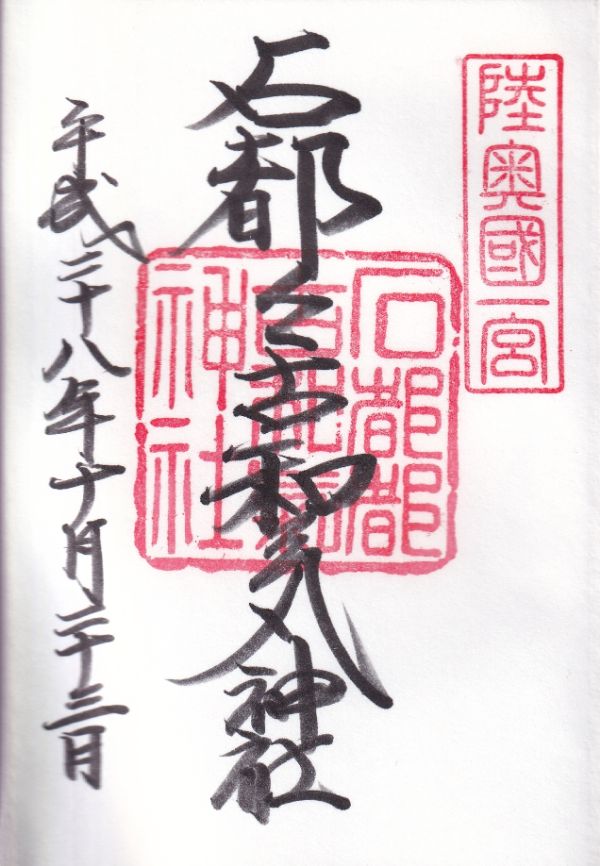 陸奥國一宮
石都々古和気神社
石都都
古和氣
神社
平成二十八年十月二十三日